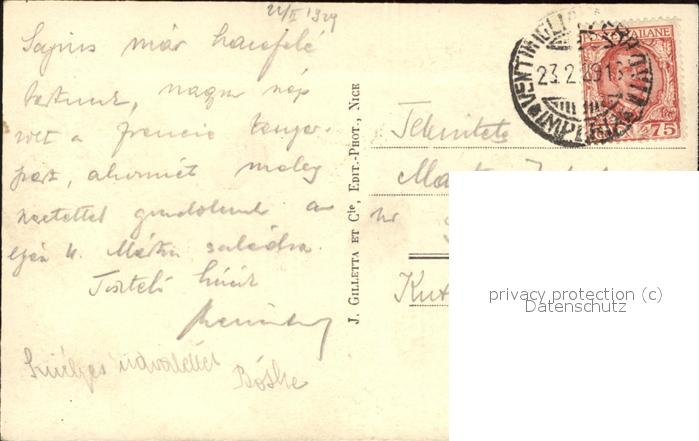 22/II 1929
Sajnos már hazafelé
tartunk, nagyon szép
volt a francia tenger-
part, ahonnét meleg
szeretettel gondolunk az
egész Márton családra.
Tisztelő híve
Szívélyes üdvözlettel
Böske
J. GILLETTA ET Cie, EDIT.-PHOT., NICE
VENTIMIGLIA
23.2.29
IMPERIA
POSTE ITALIANE
75
Tekintetes
Kut
privacy protection (c)
Datenschutz